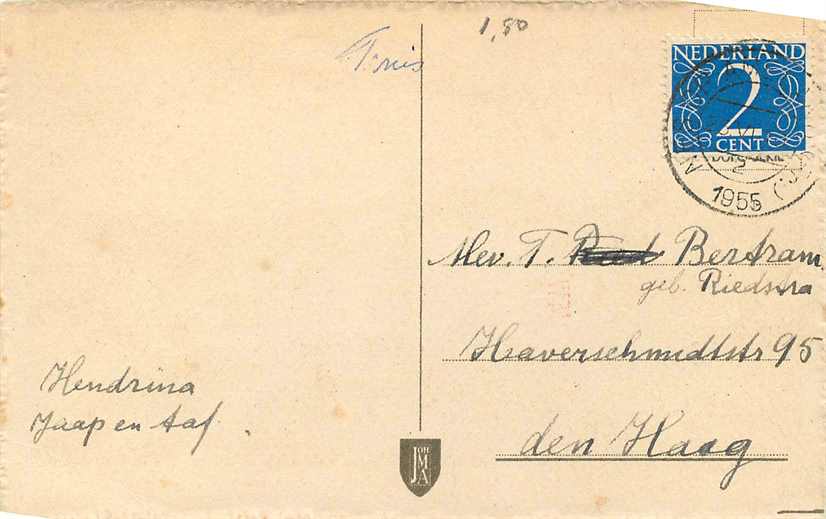 1,80
Truis
NEDERLAND
2
CENT
2
1955
Mev. T. Bertram
geb. Riedstra
Haverschmidtstr 95
den Haag
Hendrina
Jaap en Aaf
JOH
M
A